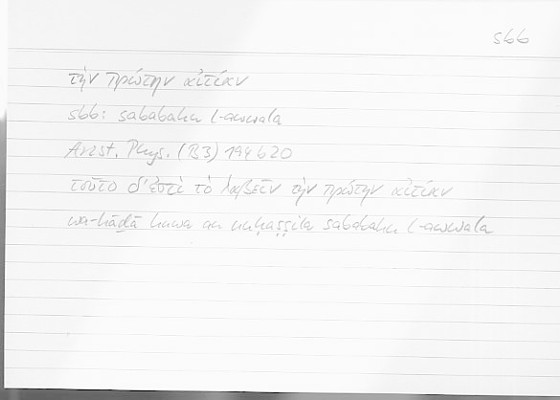 sbb
τὴν πρώτην αἰτίαν
sbb: sababahu l-awwala
Arist. Phys. (B3) 194b20
τοῦτο δ'ἐστὶ τὸ λαβεῖν τὴν πρώτην αἰτίαν
wa-hāḏā huwa an nuḥaṣṣila sababahu l-awwala